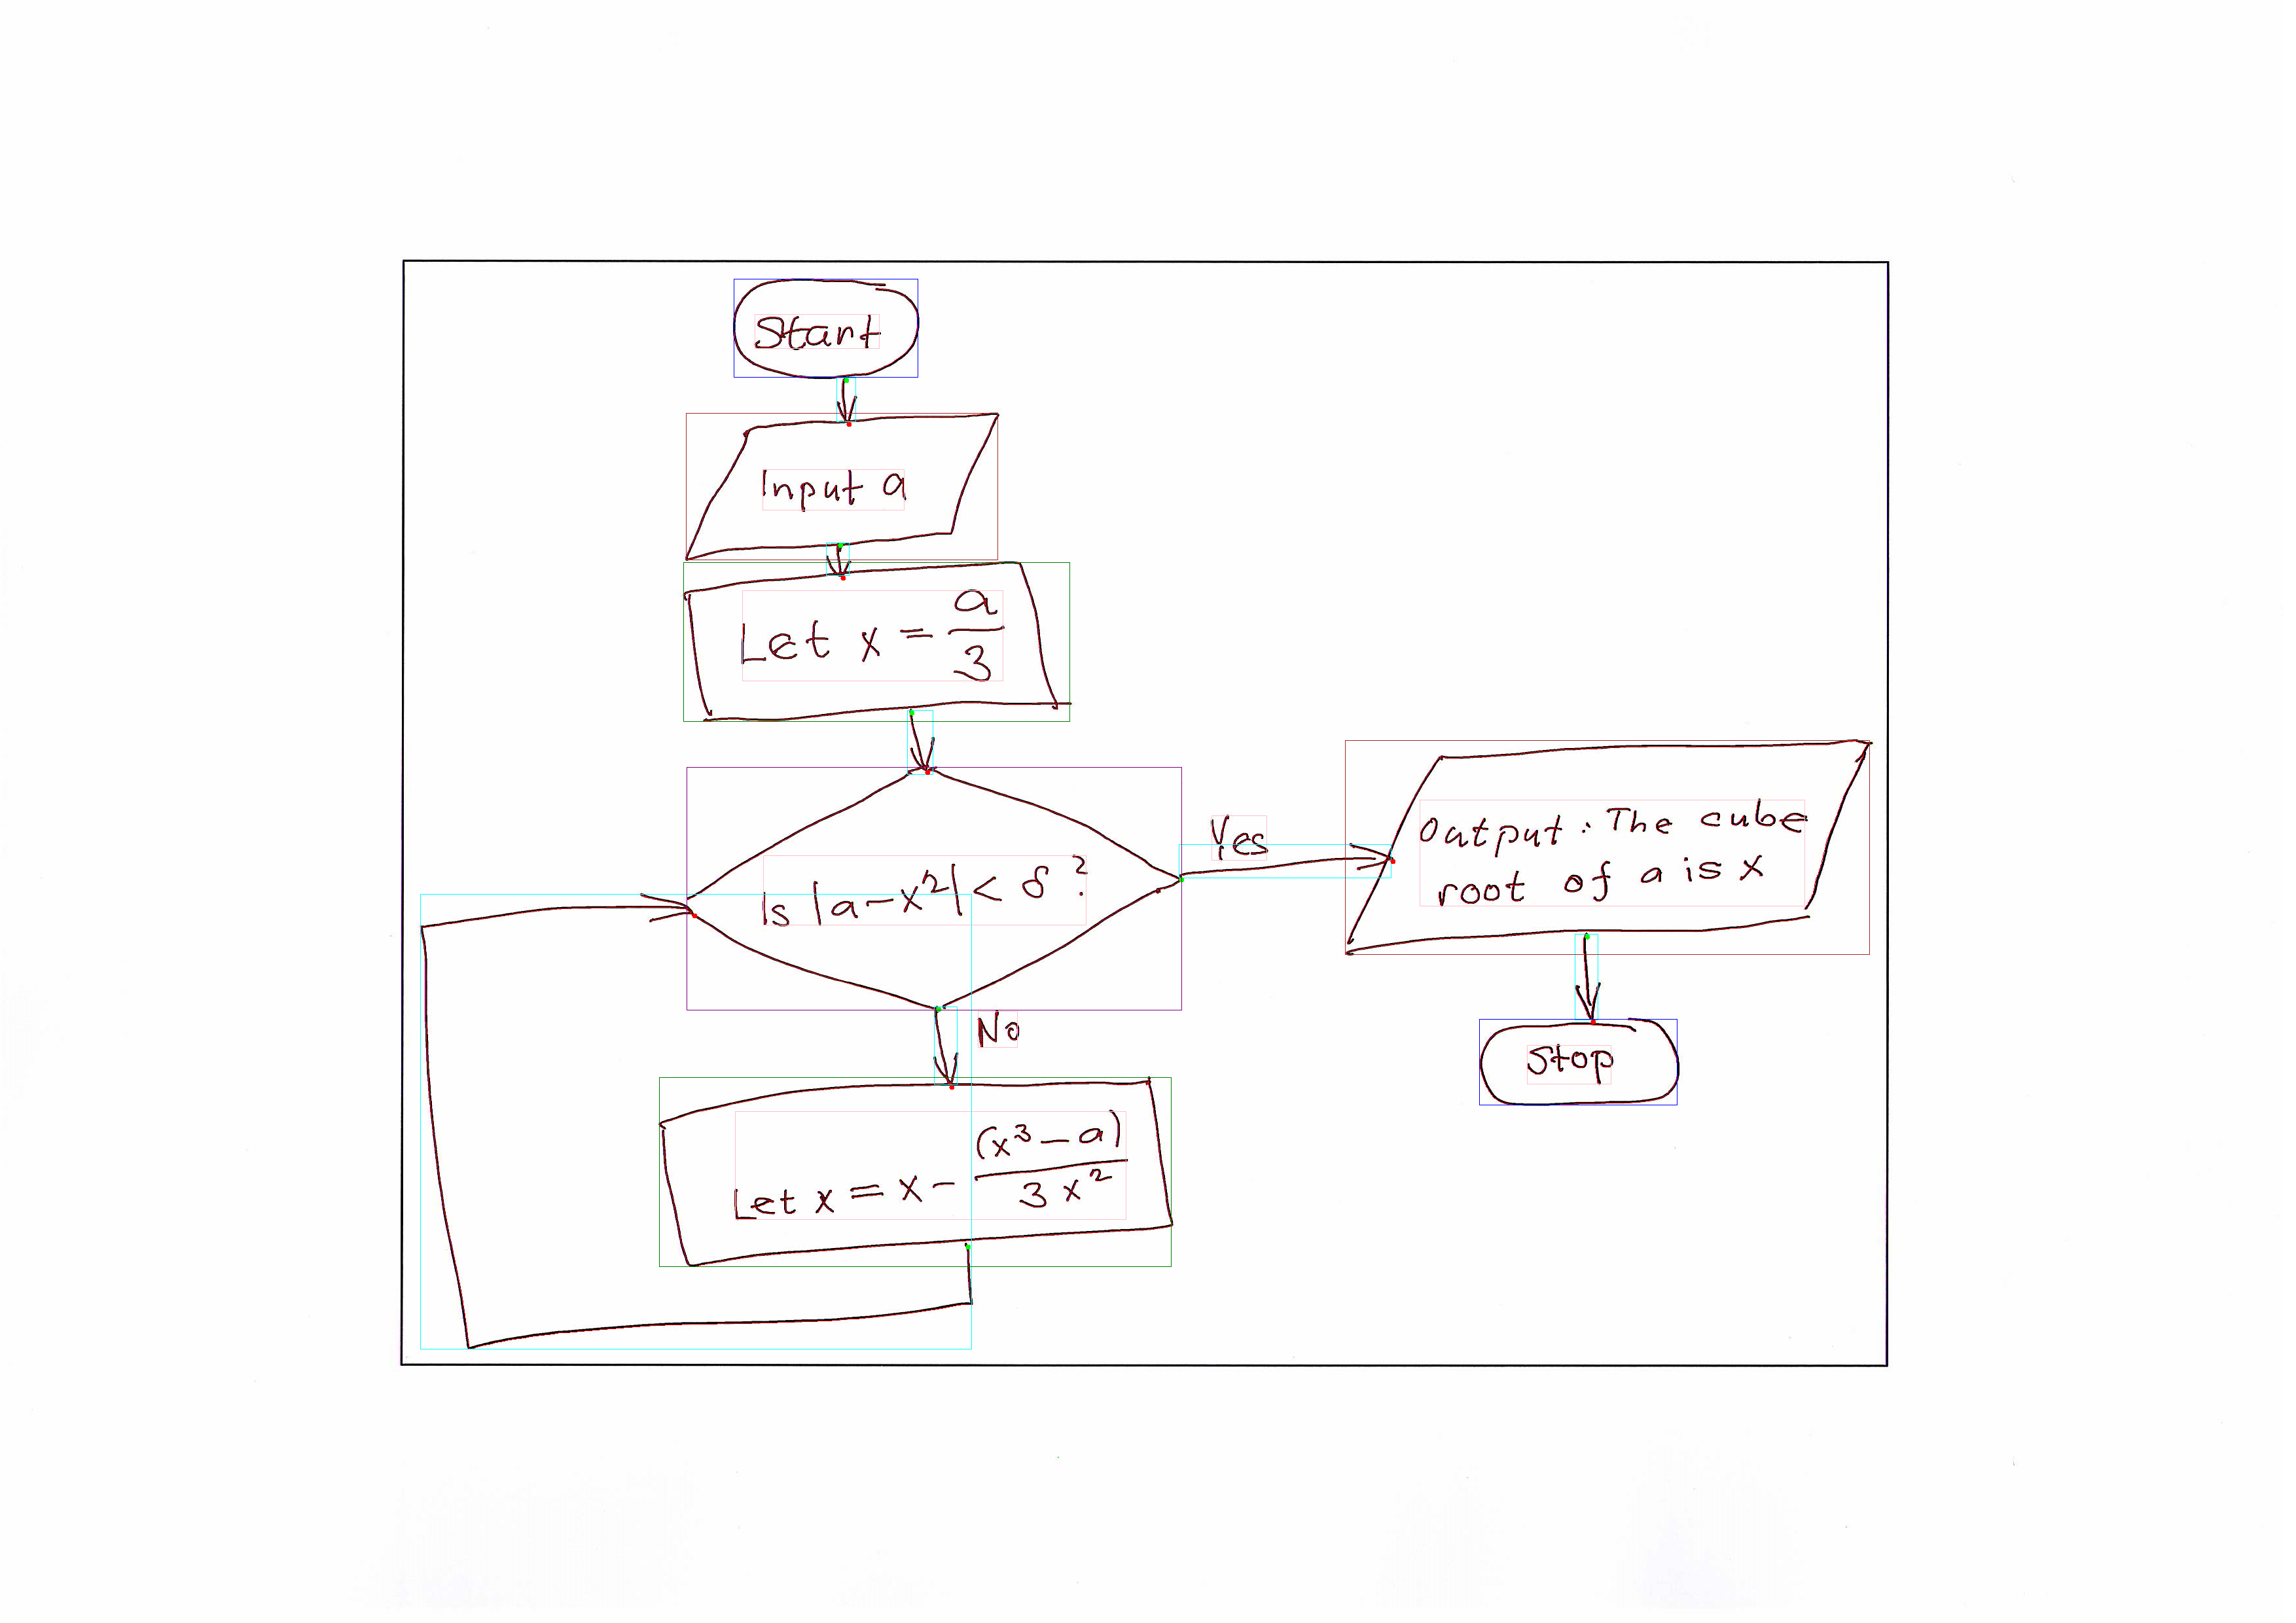 Start
Input a
Let x = a/3
Is |a-x²| < δ ?
Yes
Output: The cube
root of a is x
No
Stop
Let x = x - (x³-a)/3x²